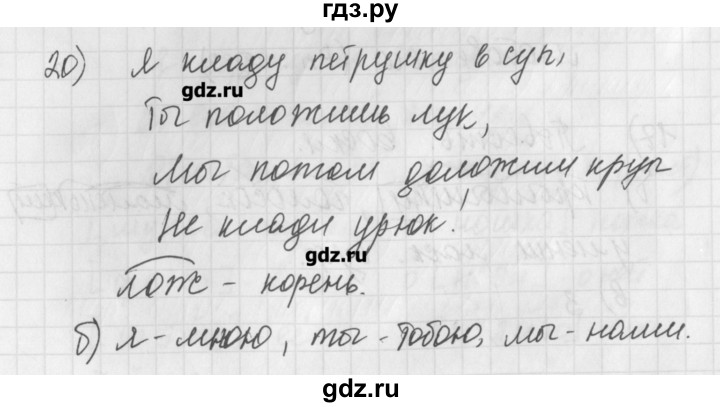 гдз.ру
20) Я кладу петрушку в суп,
gdz.ru
Ты положишь лук,
Мы потом доложим круп
Не клади урюк!
gdz.ru
лож - корень.
б) я - мною, ты - тобою, мы - нами.
gdz.ru